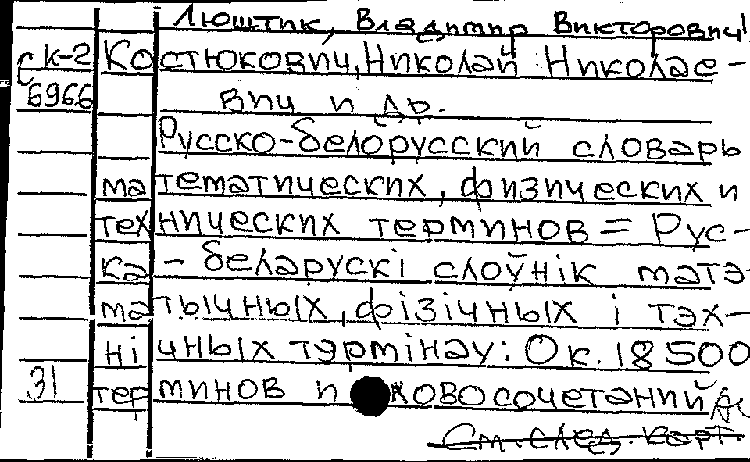 Люштик, Владимир Викторович!
СК-2 Костюкович, Николай Николае-
6966 вич и др.
Русско-белорусский словарь
математических, физических и
технических терминов = Рус-
ка-беларускі слоўнік матэ-
матычных, фізічных і тэх-
нічных тэрмінау: Ок. 18 500
31 терминов и ловосочетаний
См. след. карт.